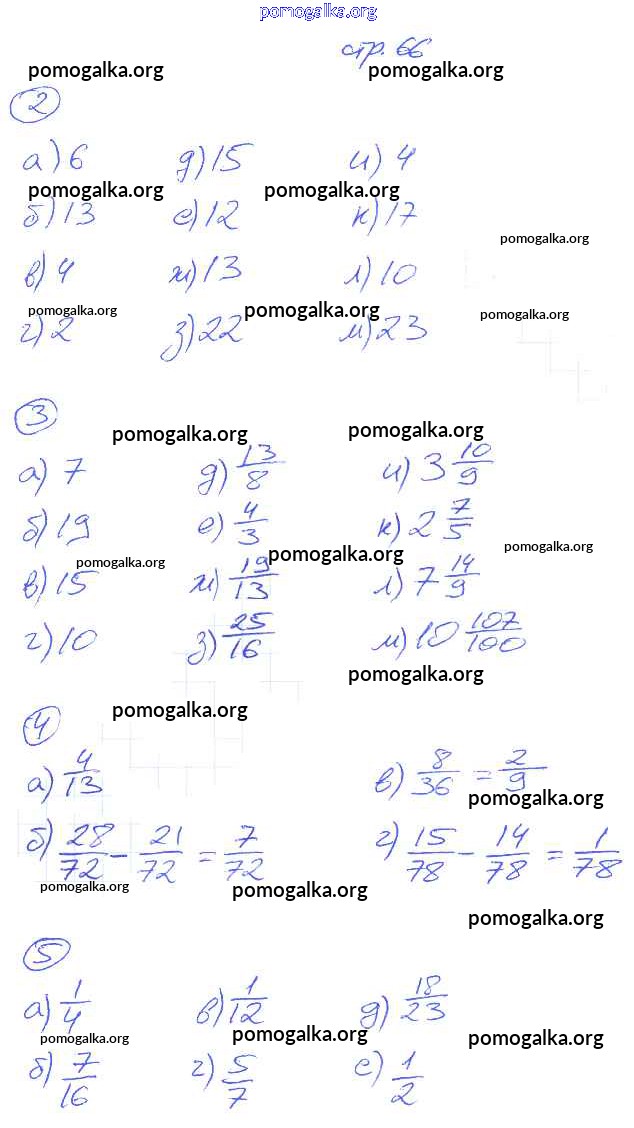 pomogalka.org
стр. 66
pomogalka.org pomogalka.org
2
а) 6 д) 15 и) 4
pomogalka.org pomogalka.org
б) 13 е) 12 к) 17
pomogalka.org
в) 4 ж) 13 л) 10
pomogalka.org pomogalka.org pomogalka.org
г) 2 з) 22 м) 23
3
pomogalka.org pomogalka.org
а) 7 д) 13/8 и) 3 10/9
б) 19 е) 4/3 к) 2 7/5
pomogalka.org pomogalka.org pomogalka.org
в) 15 ж) 19/13 л) 7 14/9
г) 10 з) 25/16 м) 10 107/100
pomogalka.org
4 pomogalka.org
а) 4/13 в) 8/36 = 2/9
pomogalka.org
б) 28/72 - 21/72 = 7/72 г) 15/78 - 14/78 = 1/78
pomogalka.org pomogalka.org
pomogalka.org
5
а) 1/4 в) 1/12 д) 18/23
pomogalka.org pomogalka.org pomogalka.org
б) 7/16 г) 5/7 е) 1/2